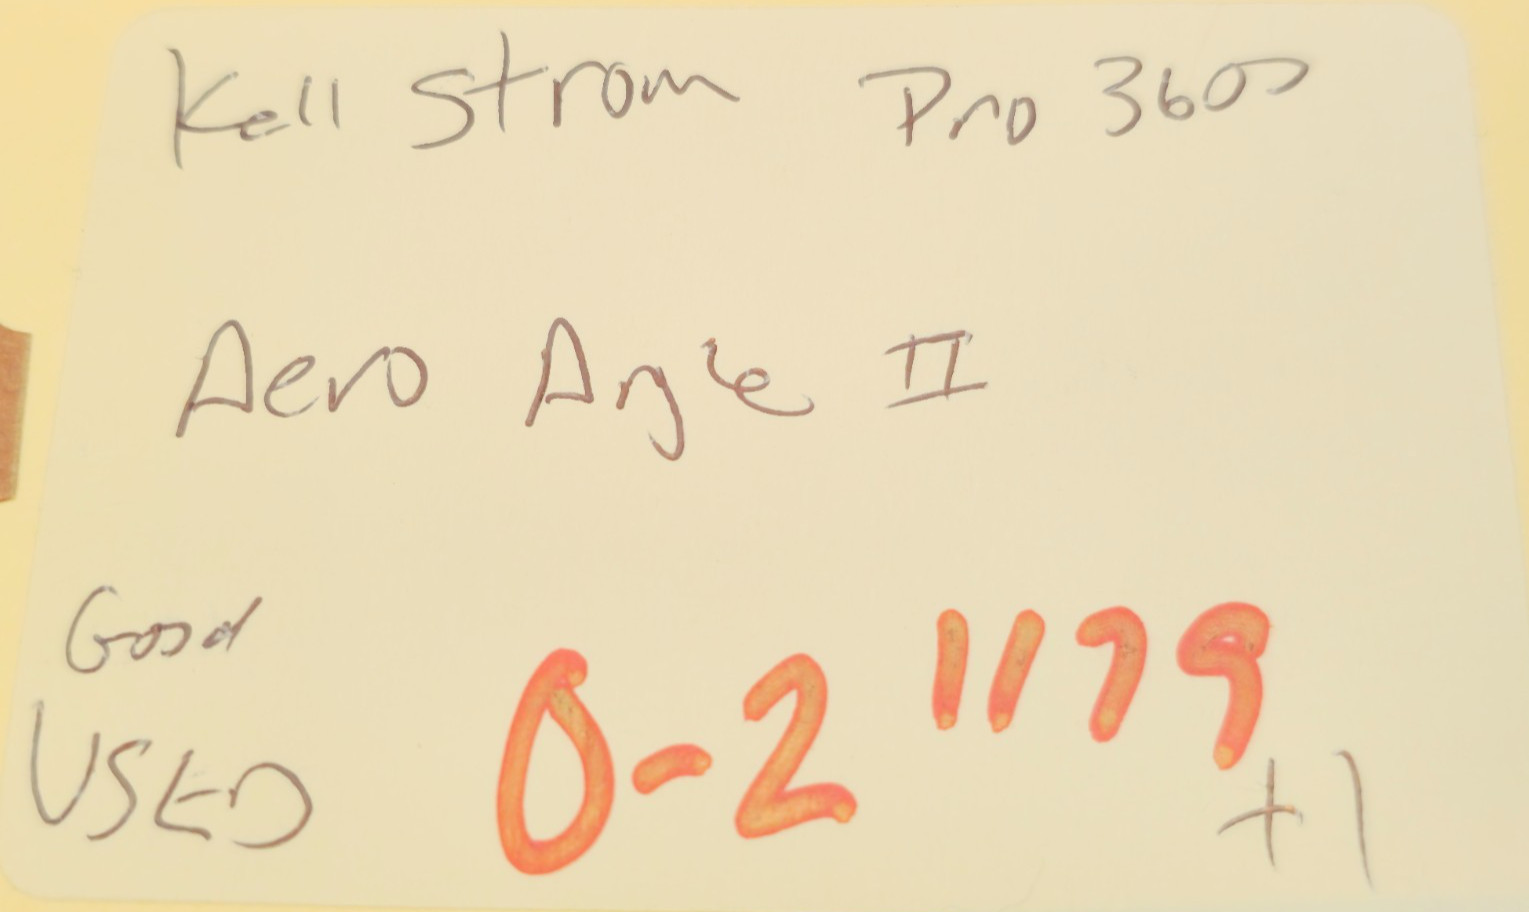 Kell Strom Pro 3600
Aero Angle II
Good
USED
0-2 1179
+1